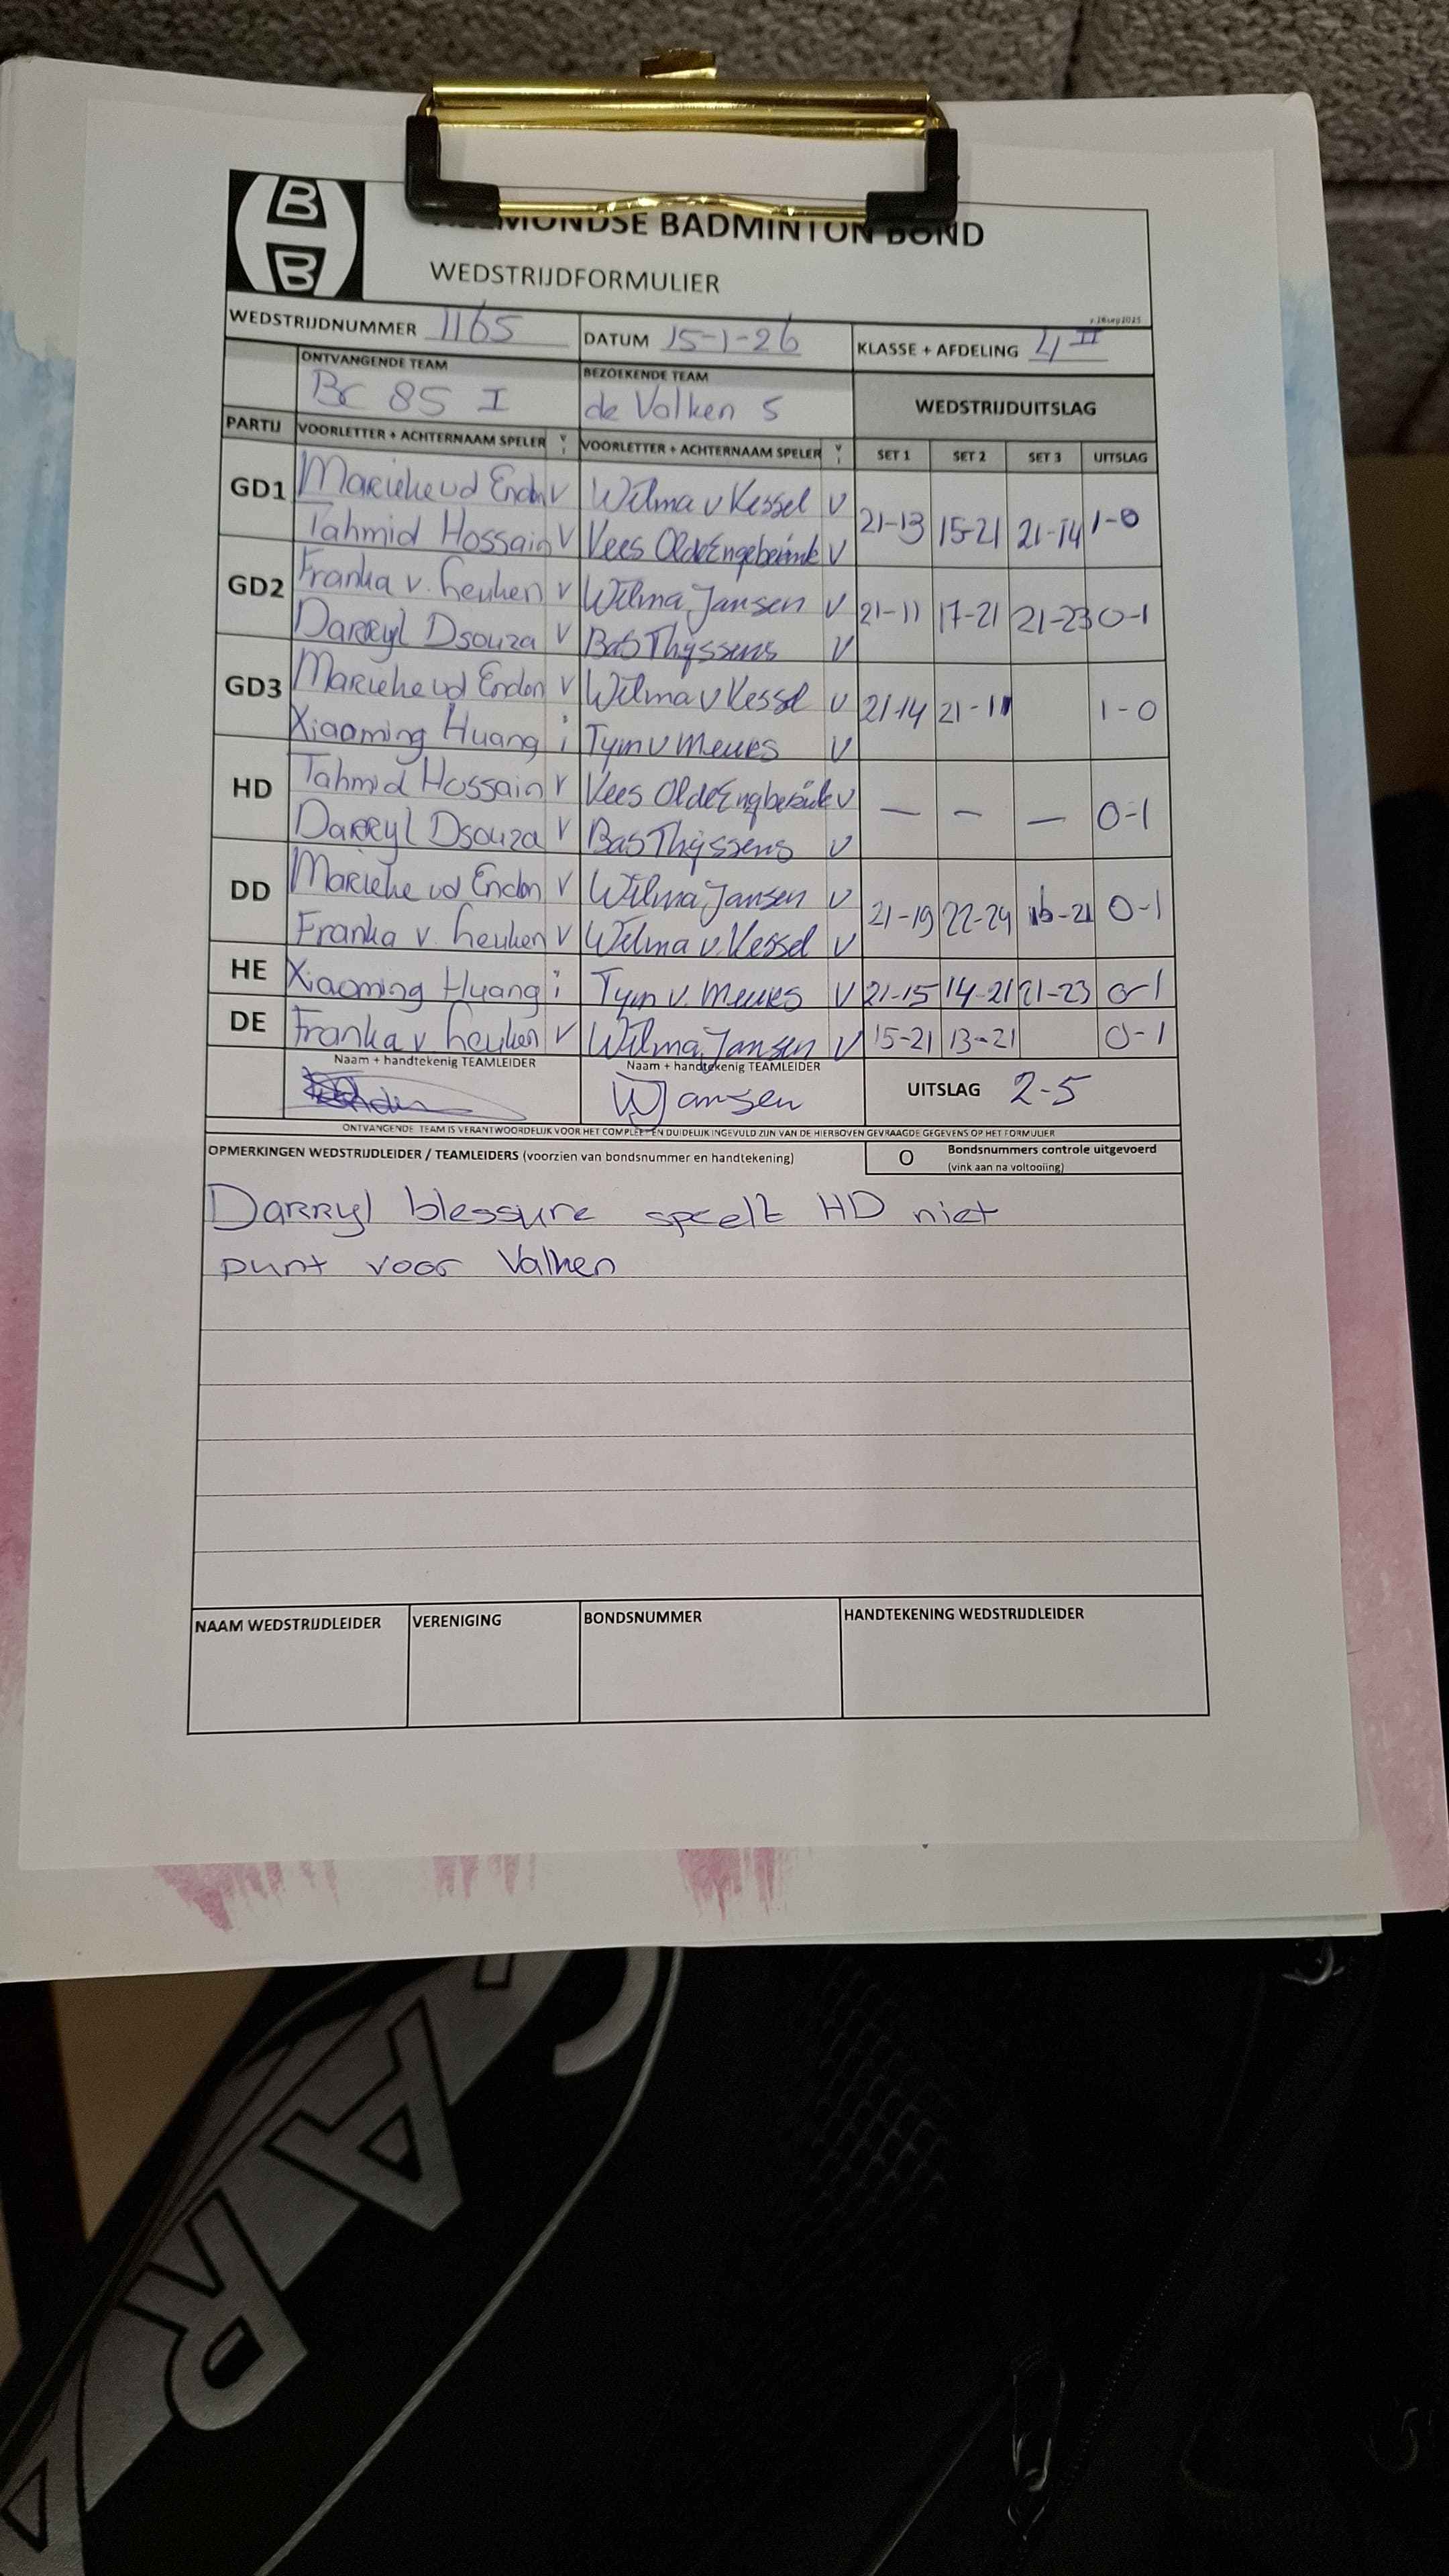 B
B
HELMONDSE BADMINTON BOND
WEDSTRIJDFORMULIER
WEDSTRIJDNUMMER 1165 DATUM 15-1-26 KLASSE + AFDELING 4 II
ONTVANGENDE TEAM BEZOEKENDE TEAM WEDSTRIJDUITSLAG
BC 85 I de Valken 5
PARTIJ VOORLETTER + ACHTERNAAM SPELER V I VOORLETTER + ACHTERNAAM SPELER V I SET 1 SET 2 SET 3 UITSLAG
GD1 Marieke vd Enden V Wilma v Kessel V 21-13 15-21 21-14 1-0
Tahmid Hossain V Kees Olde Engberink V
GD2 Franka v. Leuken V Wilma Jansen V 21-11 17-21 21-23 0-1
Darryl Dsouza V Bas Thijssens V
GD3 Marieke vd Enden V Wilma v Kessel V 21-14 21-11 1-0
Xiaoming Huang i Tym v Meurs V
HD Tahmid Hossain V Kees Olde Engberink V — — — 0-1
Darryl Dsouza V Bas Thijssens V
DD Marieke vd Enden V Wilma Jansen V 21-19 22-24 16-21 0-1
Franka v. Leuken V Wilma v. Kessel V
HE Xiaoming Huang i Tym v. Meurs V 21-15 14-21 21-23 0-1
DE Franka v Leuken V Wilma Jansen V 15-21 13-21 0-1
Naam + handtekenig TEAMLEIDER Naam + handtekenig TEAMLEIDER
WJansen UITSLAG 2-5
ONTVANGENDE TEAM IS VERANTWOORDELIJK VOOR HET COMPLEET EN DUIDELIJK INGEVULD ZIJN VAN DE HIERBOVEN GEVRAAGDE GEGEVENS OP HET FORMULIER
OPMERKINGEN WEDSTRIJDLEIDER / TEAMLEIDERS (voorzien van bondsnummer en handtekening) O Bondsnummers controle uitgevoerd
(vink aan na voltooiing)
Darryl blessure speelt HD niet
punt voor Valken
NAAM WEDSTRIJDLEIDER VERENIGING BONDSNUMMER HANDTEKENING WEDSTRIJDLEIDER